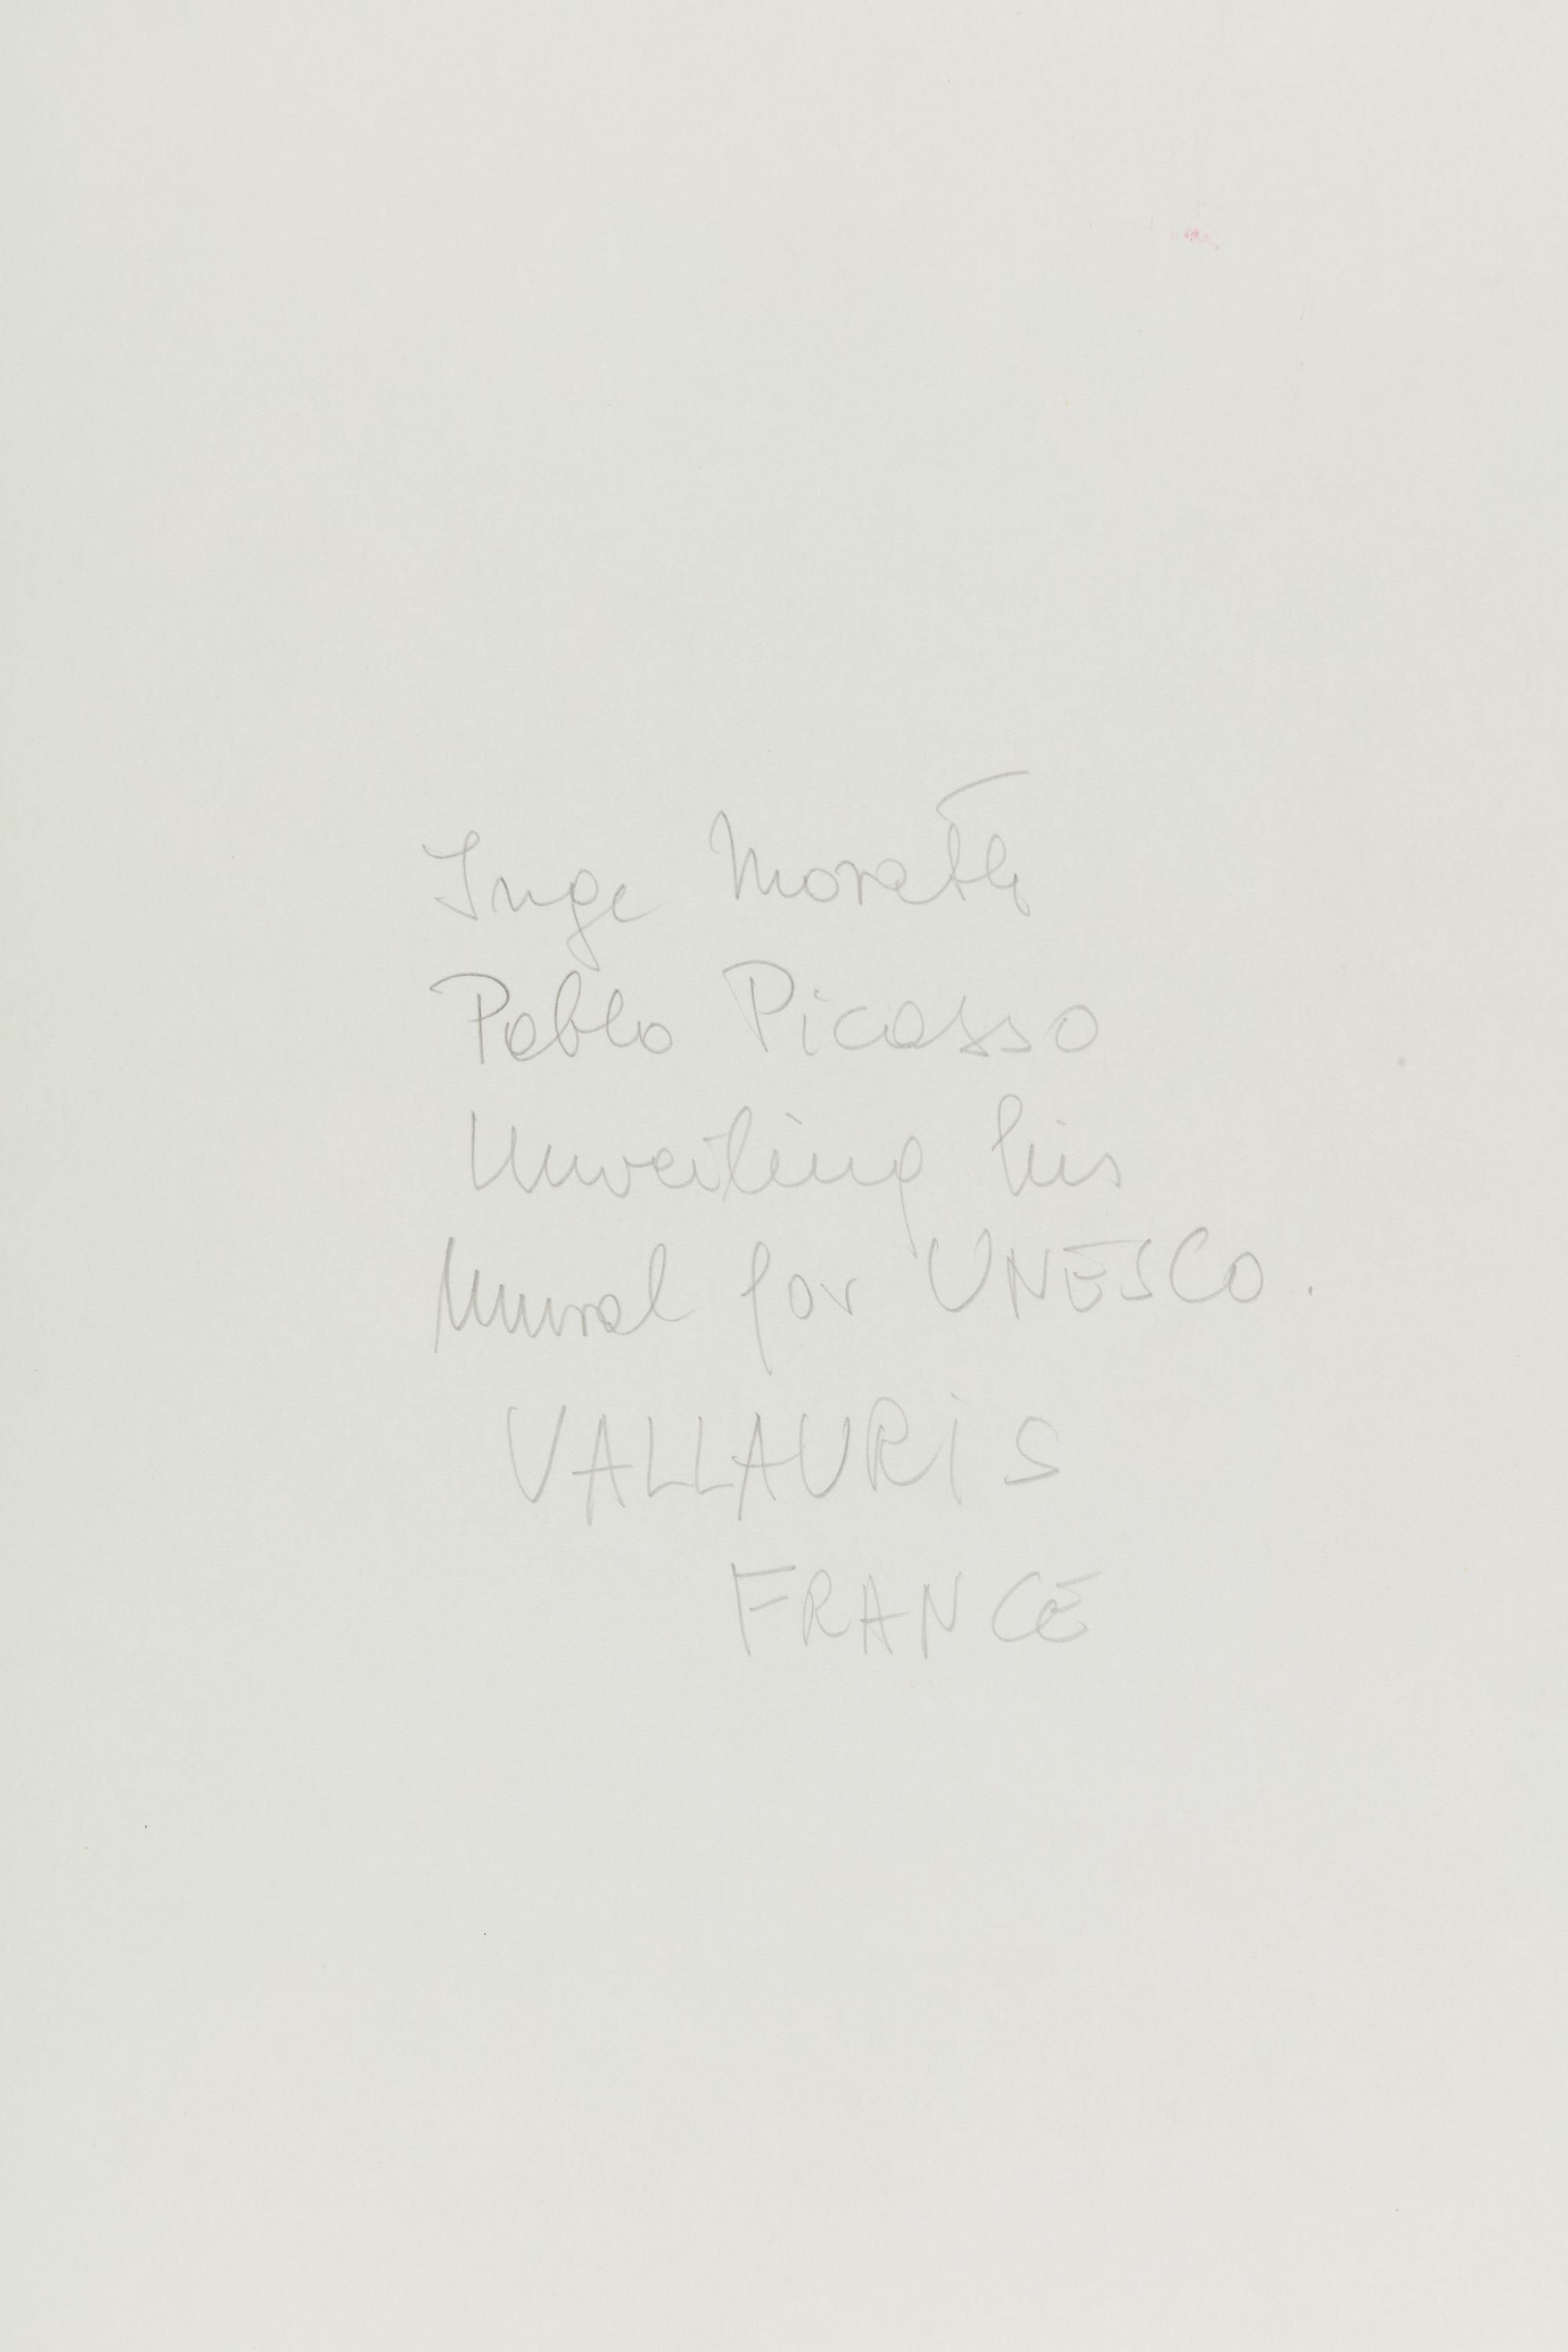 Inge Morath
Pablo Picasso
Unveiling his
Mural for UNESCO.
VALLAURiS
FRANCE